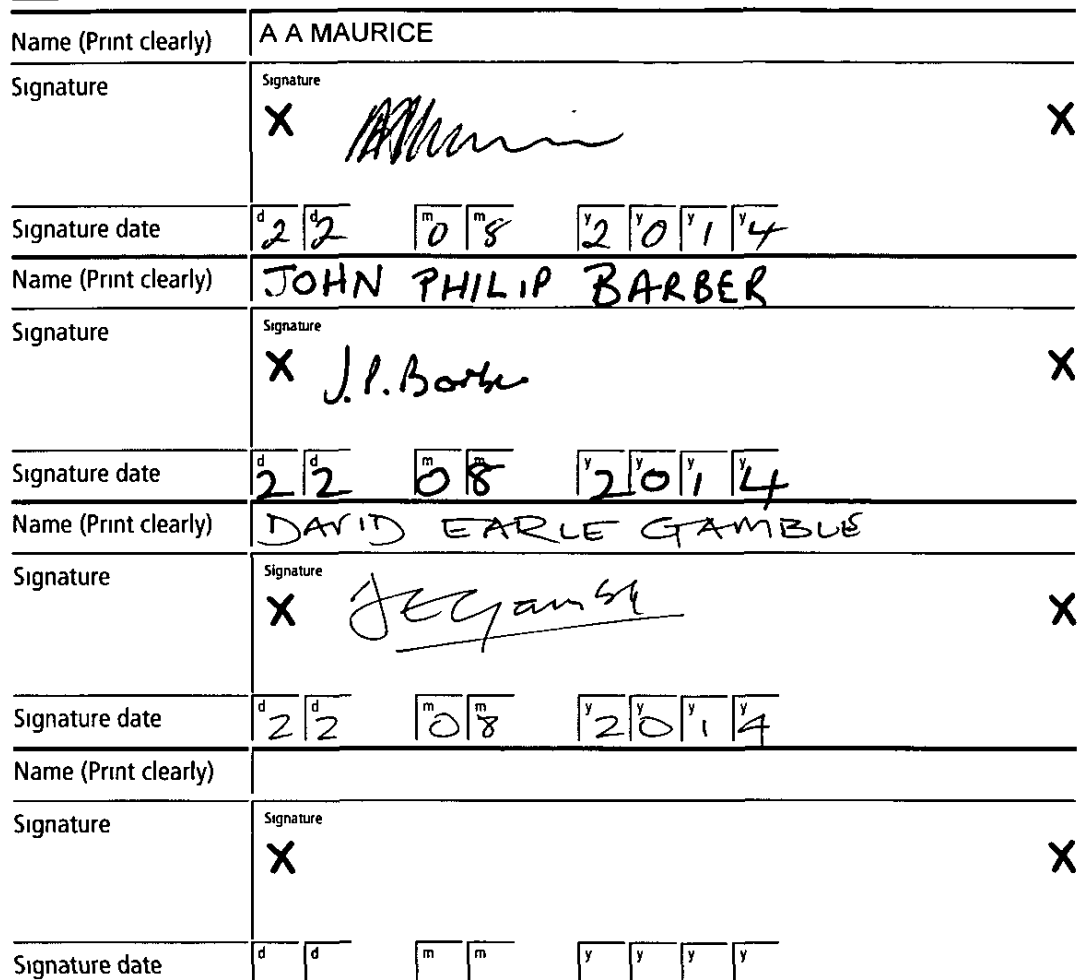 Name (Print clearly) A A MAURICE
Signature Signature
X X
Signature date d2 d2 m0 m8 y2 y0 y1 y4
Name (Print clearly) JOHN PHILIP BARBER
Signature Signature
X J.P. Barber X
Signature date d2 d2 m0 m8 y2 y0 y1 y4
Name (Print clearly) DAVID EARLE GAMBLE
Signature Signature
X DEGamble X
Signature date d2 d2 m0 m8 y2 y0 y1 y4
Name (Print clearly)
Signature Signature
X X
Signature date d d m m y y y y